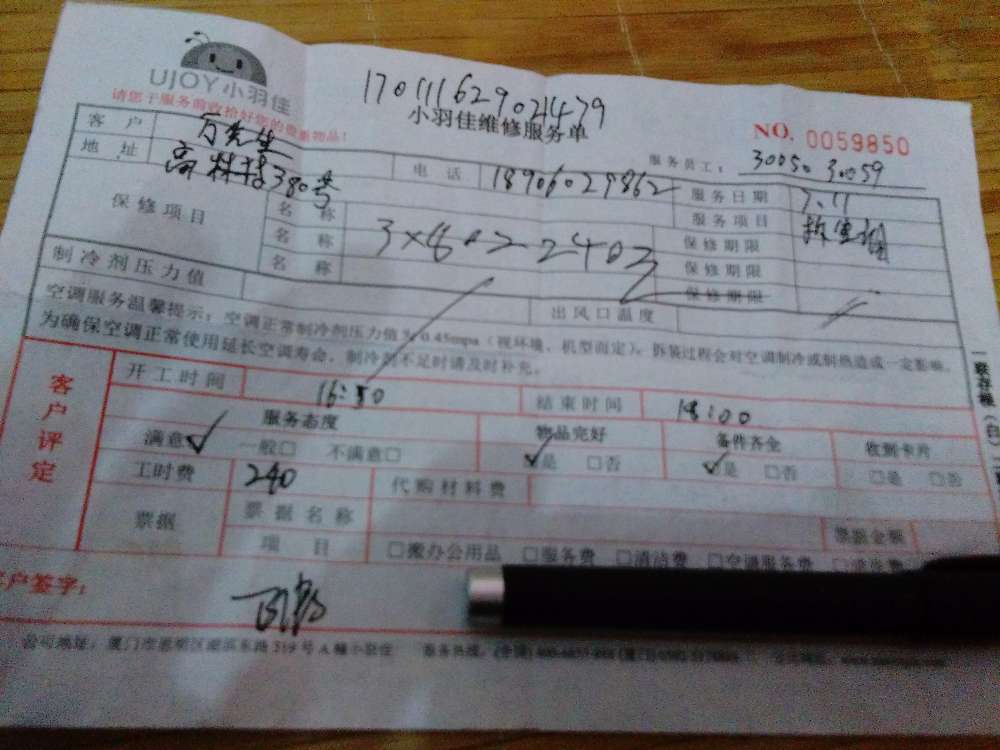 UJOY小羽佳
170111629021479
请您于服务前收拾好您的贵重物品!
小羽佳维修服务单
NO. 0059850
服务员工: 30050 30059
客户 方先生 电话 18906029862 服务日期 7.11
地址 高林 380号 服务项目
保修项目 名称 3×80=240 保修期限
名称 保修期限
名称 保修期限
制冷剂压力值 出风口温度
空调服务温馨提示:空调正常制冷剂压力值为0.45mpa(视环境、机型而定)。拆装过程会对空调制冷或制热造成一定影响。
为确保空调正常使用延长空调寿命,制冷剂不足时请及时补充。
客户评定
开工时间 16:50 结束时间 18:00
服务态度 物品完好 备件齐全 收到卡片
满意✓ 一般□ 不满意□ ✓是 □否 ✓是 □否 □是 □否
工时费 240 代购材料费
票据 票据名称 票据金额
项目 □搬办公用品 □服务费 □清洁费 □空调服务费
客户签字:
公司地址:厦门市思明区 219号A幢小羽佳 服务热线:
一联存根(白)